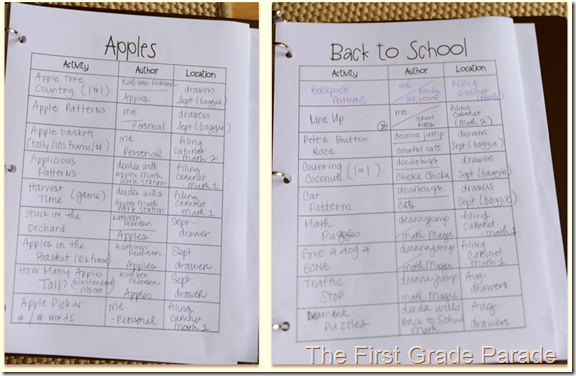 Apples
Activity Author Location
Apple Tree Kathleen Pedersen drawers
Counting (1 to 1) Apples Sept (baggie)
Apple Patterns me drawers
Personal Sept (baggie)
Apple baskets me filing
(tally/10s frame/#) Personal cabinet math 2
Applicious deedee wills filing
Patterns Apples Math Work Station cabinet - math 1
Harvest deedee wills filing
Time (game) Apples Math Work Station cabinet - math 1
Stuck in the Kathleen Pedersen Sept -
Orchard Apples drawer
Apples in the Kathleen Pedersen Sept
Basket (10s frame) Apples drawer
How Many Apples Kathleen Pedersen Sept
Tall? Apples drawer
Apple Pickin' me filing
# / # words - Personal cabinet math 1
Back to School
Activity Author Location
Backpack me filing
Patterns cabinet
Line Up me filing
school cabinet math 2
Pete's Button deanna jump drawers
Race colorful cats Sept (baggie)
Counting doodlebugs drawers
Coconuts (1 to 1) Chicka Chicka Sept (baggie)
Cat doodlebugs drawers
Patterns cats Sept (baggie)
Math deanna jump filing
Puzzles math Magic cabinet - math 1
Give a dog a deanna jump filing
BONE math Magic cabinet math 1
Traffic deanna jump Aug -
STOP math Magic drawers
Number deedee wills Aug -
Puzzles Back to School Math drawers
The First Grade Parade